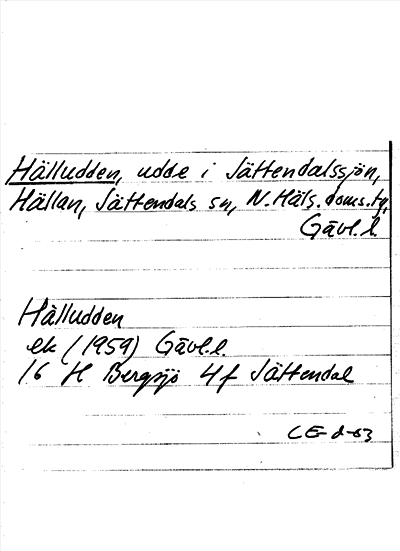 Hälludden, udde i Jättendalssjön,
Hällan, Jättendals sn, N. Häls. doms.
Gävl. l.
Hälludden
ek (1959) Gävl. l.
16 H Bergsjö 4f Jättendal